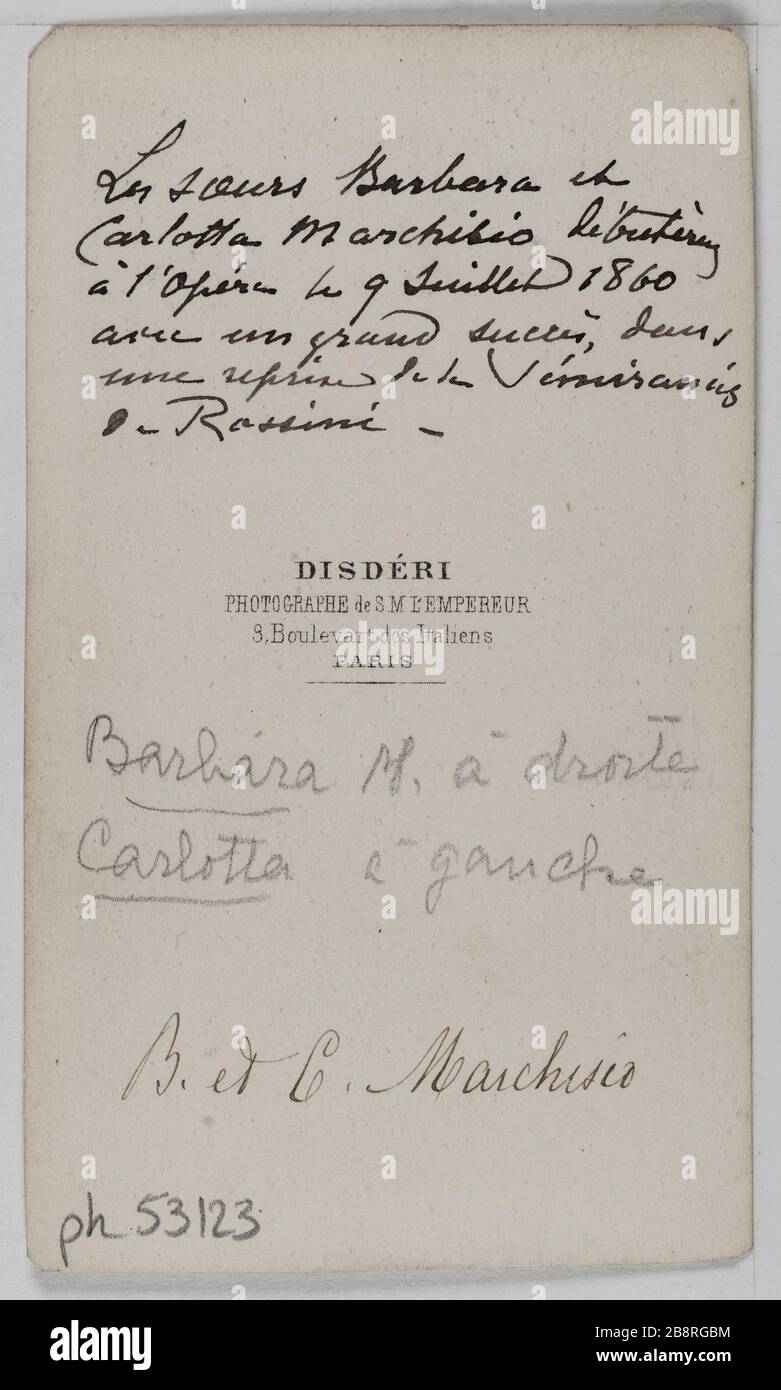 Les sœurs Barbara et
Carlotta Marchisio débutèrent
à l'Opéra le 9 Juillet 1860
avec un grand succès, dans
une reprise de la Sémiramis
de Rossini –
DISDÉRI
PHOTOGRAPHE de S M L'EMPEREUR
8, Boulevart des Italiens
PARIS
Barbara M. à droite
Carlotta à gauche
B. et C. Marchisio
ph 53123
alamy
Image ID: 2B8RGBM
www.alamy.com